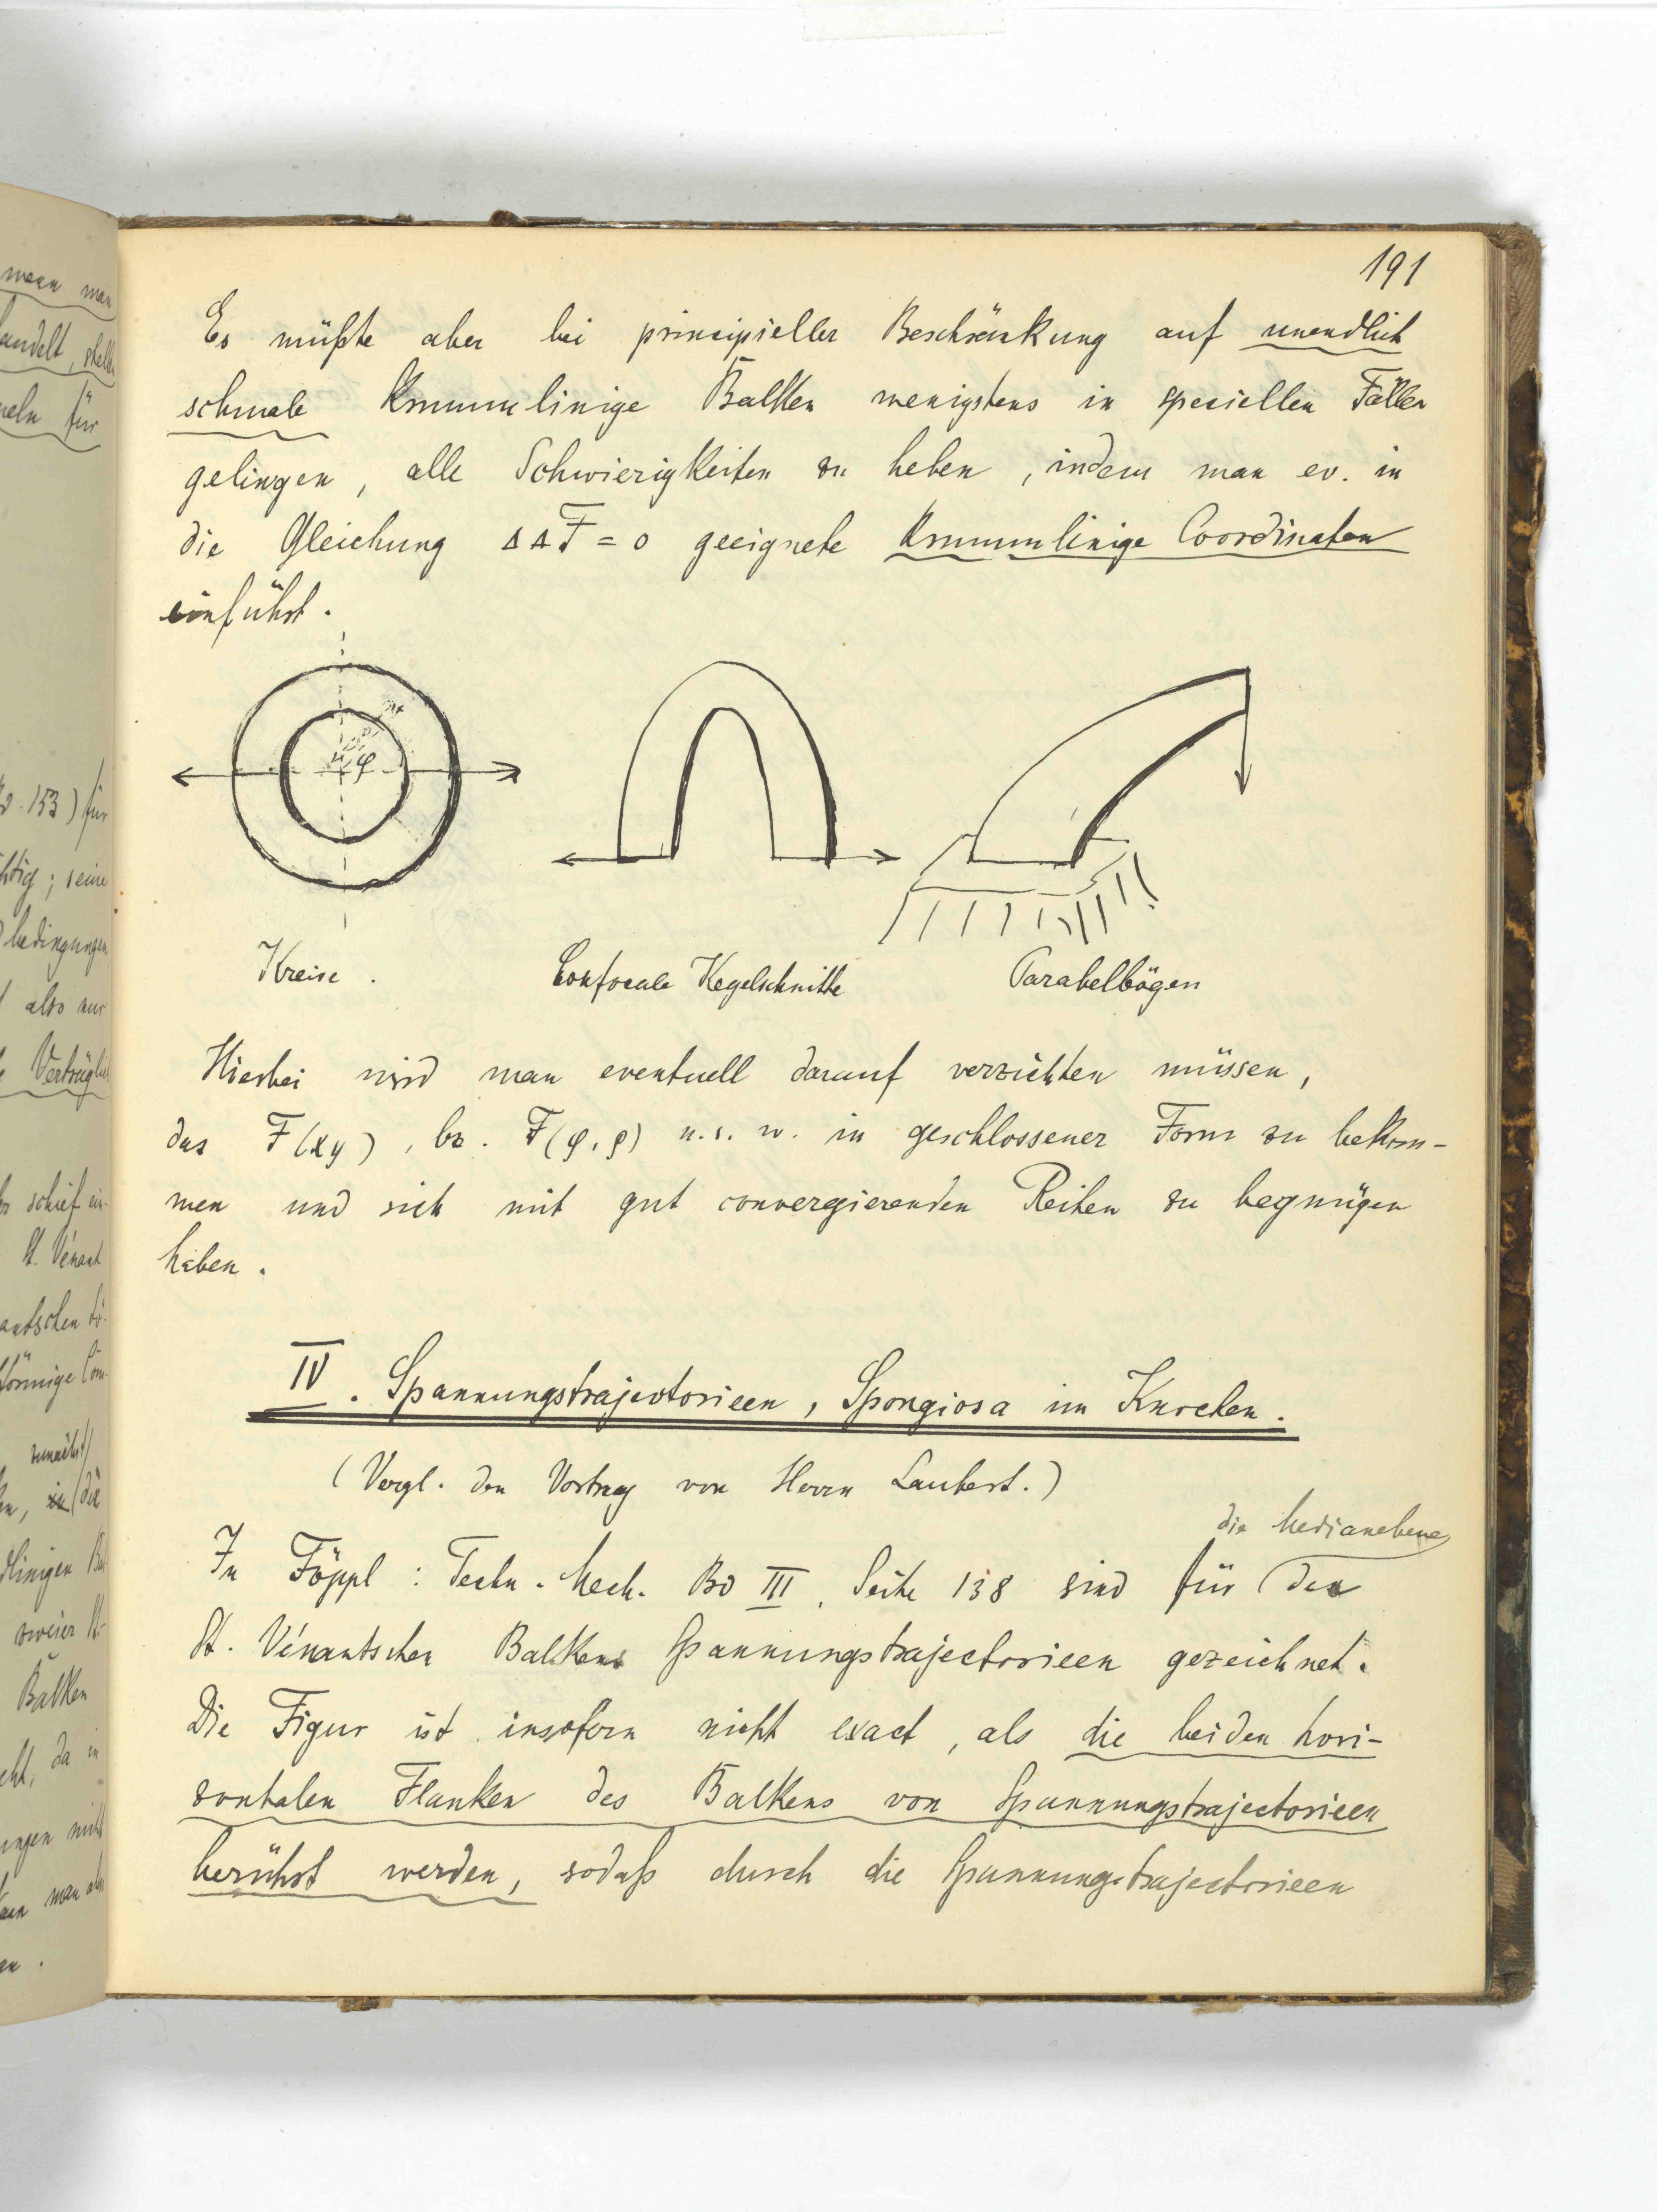 191
Es müßte aber bei principieller Beschränkung auf unendlich
schmale krummlinige Balken wenigstens in speciellen Fällen
gelingen, alle Schwierigkeiten zu heben, indem man ev. in
die Gleichung ΔΔF = 0 geeignete krummlinige Coordinaten
einführt.
φ
Kreise.
Confocale Kegelschnitte
Parabelbögen
Hierbei wird man eventuell darauf verzichten müssen,
das F(xy), bz. F(φ,ρ) u.s.w. in geschlossener Form zu bekom-
men und sich mit gut convergierenden Reihen zu begnügen
haben.
IV. Spannungstrajectorieen, Spongiosa im Knochen.
(Vergl. den Vortrag von Herrn Laubert.)
die Medianebene
In Föppl: Techn. Mech. Bd III, Seite 138 sind für des
St. Vénantschen Balkens Spannungstrajectorieen gezeichnet.
Die Figur ist insofern nicht exact, als die beiden hori-
zontalen Flanken des Balkens von Spannungstrajectorieen
berührt werden, sodaß durch die Spannungstrajectorieen
wenn man
andelt, stellt
für
153) für
htig; seine
bedingungen
also nur
Verträglich
schief ein-
St. Vénant
förmige
zunächst
die
dlinigen
zweier St-
Balken
da in
man